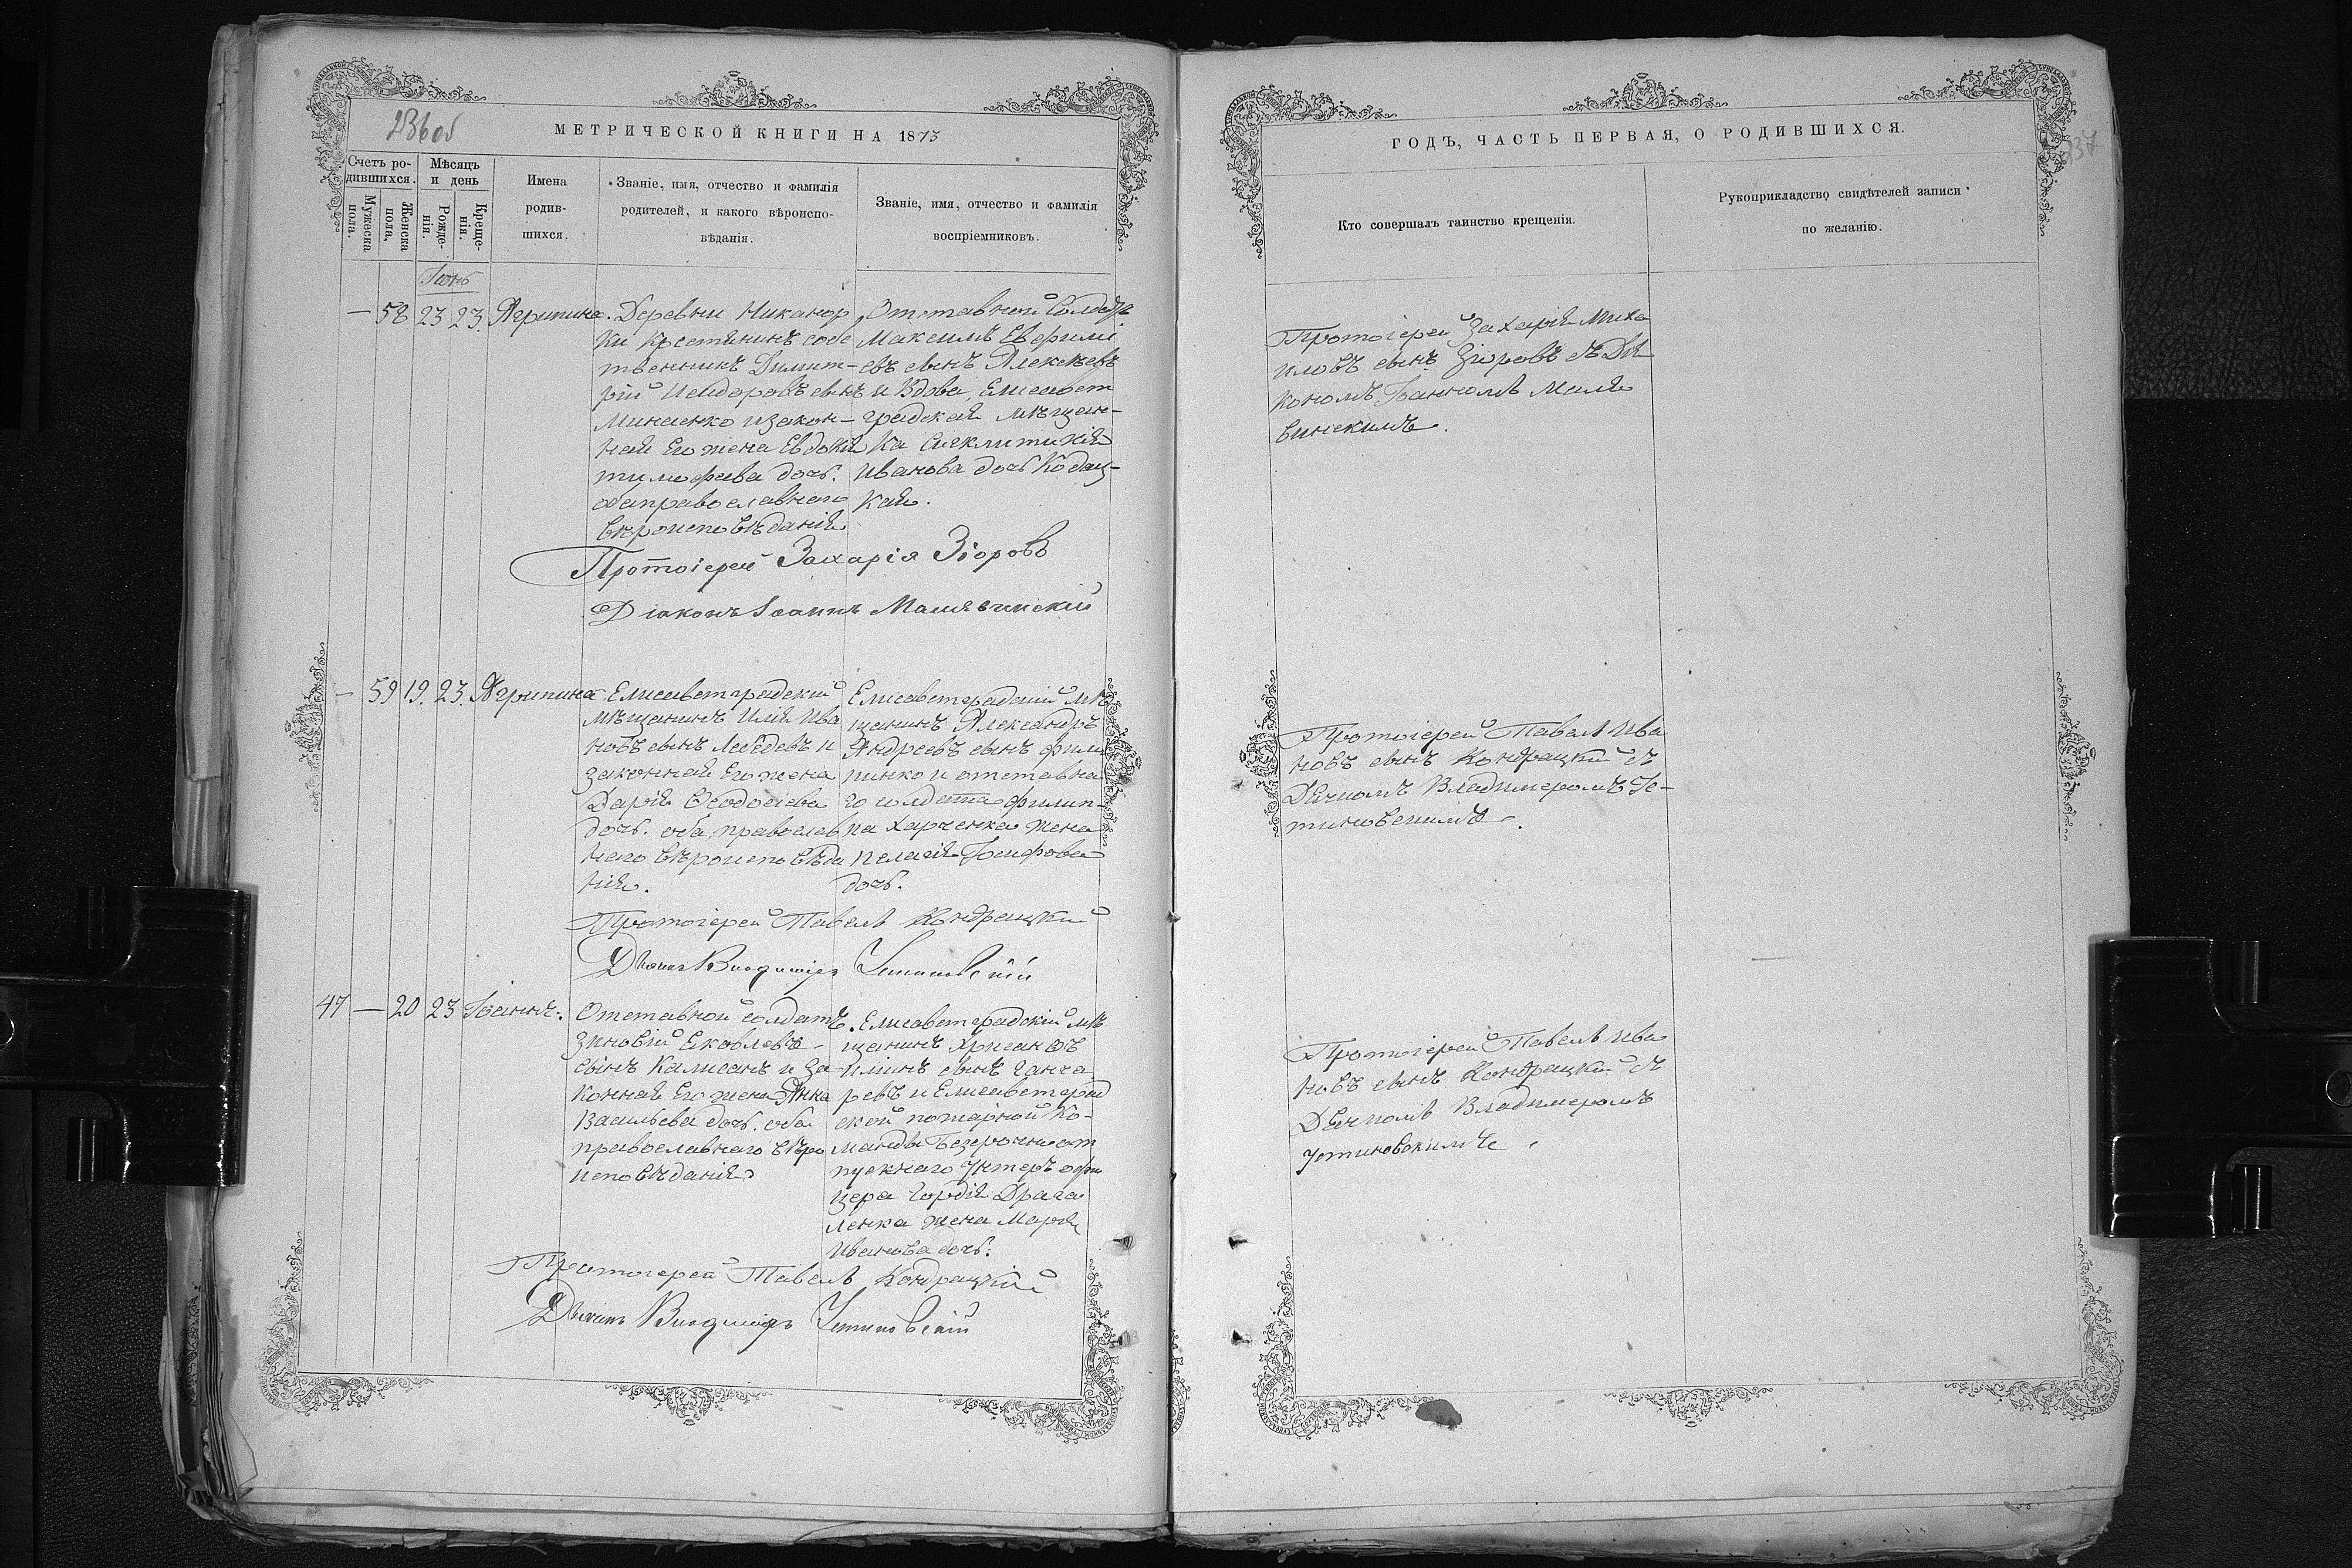 236 об
МЕТРИЧЕСКОЙ КНИГИ НА 1873
Счетъ ро-
дившихся.
Мужеска
пола.
Женска
пола,
Мѣсяцъ
и день
Рожде-
нія.
Креще-
нія.
Имена
родив-
шихся.
Званіе, имя, отчество и фамилія
родителей, и какого вѣроиспо-
вѣданія.
Званіе, имя, отчество и фамилія
воспріемниковъ.
Іюнь
— 58 23 23. Агрипина.
Деревни Никанор
ки Крестьянинъ собс
твенникъ Димит-
рій Исидоровъ сынъ
Минаенко и закон-
ная Его жена Евдокія
тимофеева дочь.
оба православнаго
вѣроисповѣданія
Отставной Солдатъ
Максимъ Евфимі
евъ сынъ Алексѣевъ
и Вдова, Елисавет
градская мѣщан-
ка Синклитикія
Иванова дочь Кодац-
кая.
Протоіерей Захарія Зіоровъ
Діаконъ Іоаннъ Малявинскій
— 59 19. 23. Агрипина
Елисаветградскій
мѣщанинъ Илія Ива
новъ сынъ Лебедевъ и
законная Его жена
Дарія Ѳеодосіева
дочь. оба православ
наго вѣроисповѣда
нія.
Елисаветградскій мѣ
щанинъ Александръ
Андреевъ сынъ фили
пинко и отставна
го солдата филип-
па Харченка жена
пелагія Іосифова
дочь.
Протоіерей Павелъ Кондрацкій
Дьячокъ Владиміръ Устиновскій
47 — 20 23 Іоаннъ.
Отставной солдатъ
Зиновій Яковлевъ
сынъ Калисанъ и за
конная Его жена Анна
Васильева дочь. оба
православнаго вѣро
исповѣданія
Елисаветградскій мѣ
щанинъ Хрисанѳъ
Илiинъ сынъ Ганча
ревъ и Елисаветград
ской пожарной Ко-
манды Безсрочноот
пускнаго Унтеръ офи
цера Гордія Драга
ленка жена Марія
Иванова дочь.
Протоіерей Павелъ Кондрацкій
Дьячокъ Владиміръ Устиновскій
ГОДЪ, ЧАСТЬ ПЕРВАЯ, О РОДИВШИХСЯ.
237
Кто совершалъ таинство крещенія.
Рукоприкладство свидѣтелей записи
по желанію.
Протоіерей Захарія Миха
иловъ сынъ Зіоровъ съ Діа
кономъ Іоанномъ Маля
винскимъ.
Протоіерей Павелъ Ива
новъ сынъ Кондрацкій съ
Дьячкомъ Владимеромъ Ус-
тиновскимъ.
Протоіерей Павелъ Ива
новъ сынъ Кондрацкій съ
Дьячкомъ Владимеромъ
Устиновскимъ.